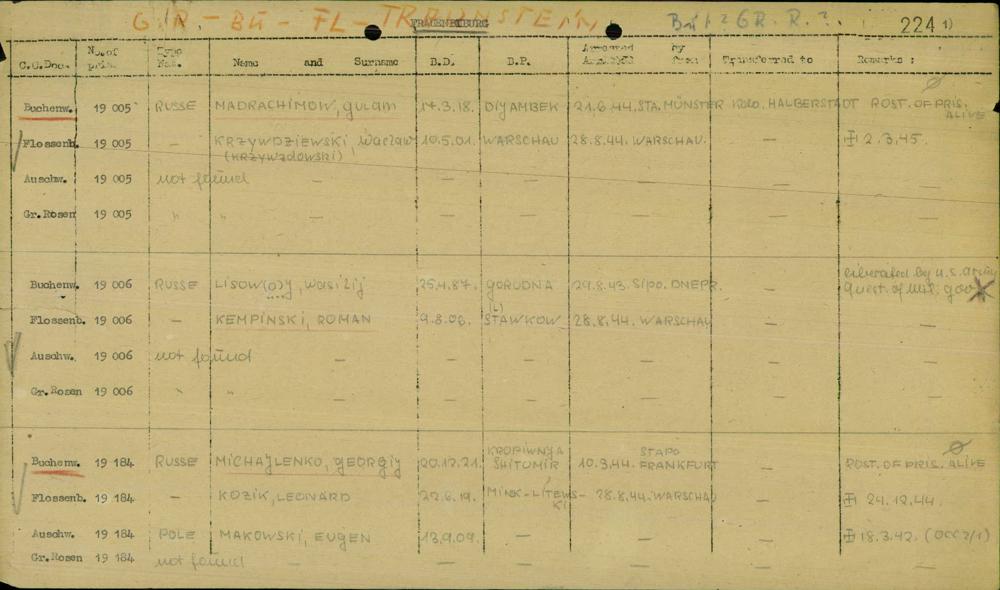 G.R - BU - FL - TRAUNSTEIN, Bu1? GR. R.?. 224 1)
C.C.Doc. No.of pris. Type Nat. Name and Surname B.D. B.P. Arrested by from Transferred to Remarks :
Buchenw. 19 005 RUSSE MADRACHIMOW, gulam 17.3.18. DIYAMBEK 21,6.44. STA. MÜNSTER KDO. HALBERSTADT Ø POST. OF PRIS. ALIVE
Flossenb. 19 005 — KRZYWDZIEWSKI, Wacław 10.5.01. WARSCHAU 28.8.44. WARSCHAU. — 2.3.45.
(KRZYWZDOWSKI)
Auschw. 19 005 not found — — — — —
Gr.Rosen 19 005 " " — — — — —
Buchenw. 19 006 RUSSE LISOW(O)J, Wasilij 25.4.87. GORUDNA 29.8.43. Sipo. DNEPR. — liberated by U.S. army
Quest. of Mil. gov X
Flossenb. 19 006 — KEMPINSKI, ROMAN 9.8.06. (L) STAWKOW 28.8.44. WARSCHAU — —
Auschw. 19 006 not found — — — — —
Gr.Rosen 19 006 " " — — — — —
Buchenw. 19 184 RUSSE MICHAJLENKO, GEORGIJ 20.12.21. KROPIWNJA SHITOMIR 10.3.44. STAPO FRANKFURT — Ø POST. OF PRIS. ALIVE
Flossenb. 19 184 — KOZIK, LEONARD 22.6.19. MINSK-LITEWSKI 28.8.44. WARSCHAU — 24.12.44.
Auschw. 19 184 POLE MAKOWSKI, EUGEN 13.9.09. — — — 18.3.42. (OCC 2/1)
Gr.Rosen 19 184 not found — — — — —